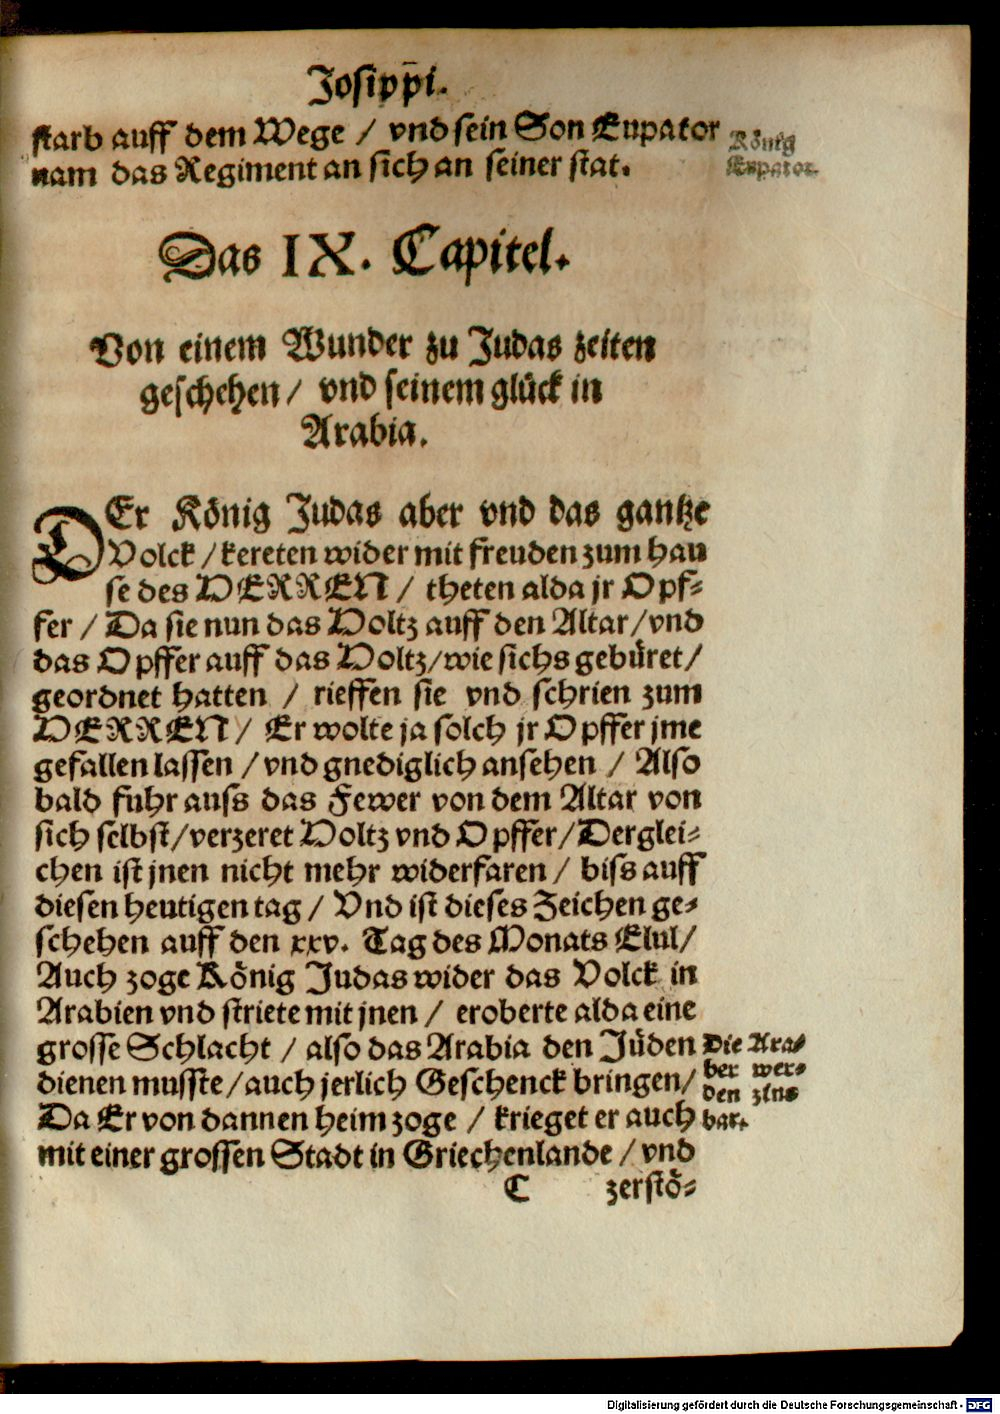 Josippi.
starb auff dem Wege / vnd sein Son Eupator
nam das Regiment an sich an seiner stat.
König
Eupator.
Das IX. Capitel.
Von einem Wunder zu Judas zeiten
geschehen / vnd seinem glück in
Arabia.
DEr König Judas aber vnd das gantze
Volck / kereten wider mit freuden zum hau
se des HERREN / theten alda jr Opf-
fer / Da sie nun das Holtz auff den Altar / vnd
das Opffer auff das Holtz / wie sichs gebüret /
geordnet hatten / rieffen sie vnd schrien zum
HERREN / Er wolte ja solch jr Opffer jme
gefallen lassen / vnd gnediglich ansehen / Also
bald fuhr auss das Fewer von dem Altar von
sich selbst / verzeret Holtz vnd Opffer / Derglei-
chen ist jnen nicht mehr widerfaren / biss auff
diesen heutigen tag / Vnd ist dieses Zeichen ge-
schehen auff den xxv. Tag des Monats Elul /
Auch zoge König Judas wider das Volck in
Arabien vnd striete mit jnen / eroberte alda eine
grosse Schlacht / also das Arabia den Jüden
dienen musste / auch jerlich Geschenck bringen /
Da Er von dannen heim zoge / krieget er auch
mit einer grossen Stadt in Griechenlande / vnd
Die Ara-
ber wer-
den zins
bar.
C zerstö-
Digitalisierung gefördert durch die Deutsche Forschungsgemeinschaft - DFG